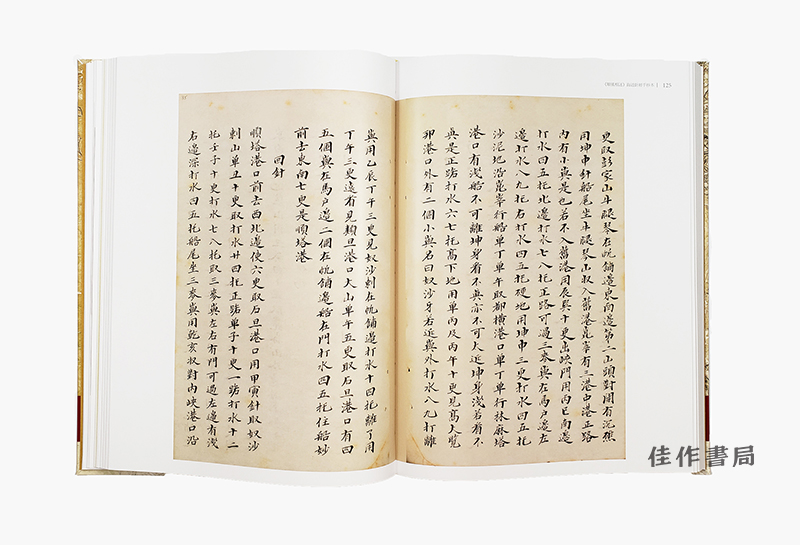 125
更取彭家山斗礙琴在帆鋪邊東向邊第二山頭對開有沉礁
用坤申針船尾坐斗礙琴山收入舊港崑峯有三港中港正路
內有小㠘是也若不入舊港用辰巽十更出峽門用丙巳向邊
打水四五托北邊打水七八托正路可過三麥㠘在馬戶邊左
邊打水八九托右打水四五托硬地用坤申三更打水四五托
沙泥地沿崑峯行船單丁單午取都橫港口單丁單午行林麻塔
港口有淺船不可離坤身看不真亦不可大近坤身淺若看不
真是正路打水六七托高下地用單丙及丙午十更見高大覽
邦港口外有二個小㠘名曰奴沙牙若近㠘外打水八九打離
㠘用乙辰丁午三更見奴沙剌在帆鋪邊打水十四托離了用
丁午三更遠有見頼旦港口大山單午五更取石旦港口有四
五個㠘在馬戶邊二個在帆鋪邊船在門打水四五托住船妙
前去東向七更是順塔港
回針
順塔港口前去西北邊使六更取石旦港口用甲寅針取奴沙
剌山單丑十更取打水廿四托正路單子十更一路打水十二
托壬子十更打水七八托取三麥㠘左右有門可過左邊有淺
右邊深打水四五托船尾坐三麥㠘用乾亥收對內峽港口沿
佳作書局